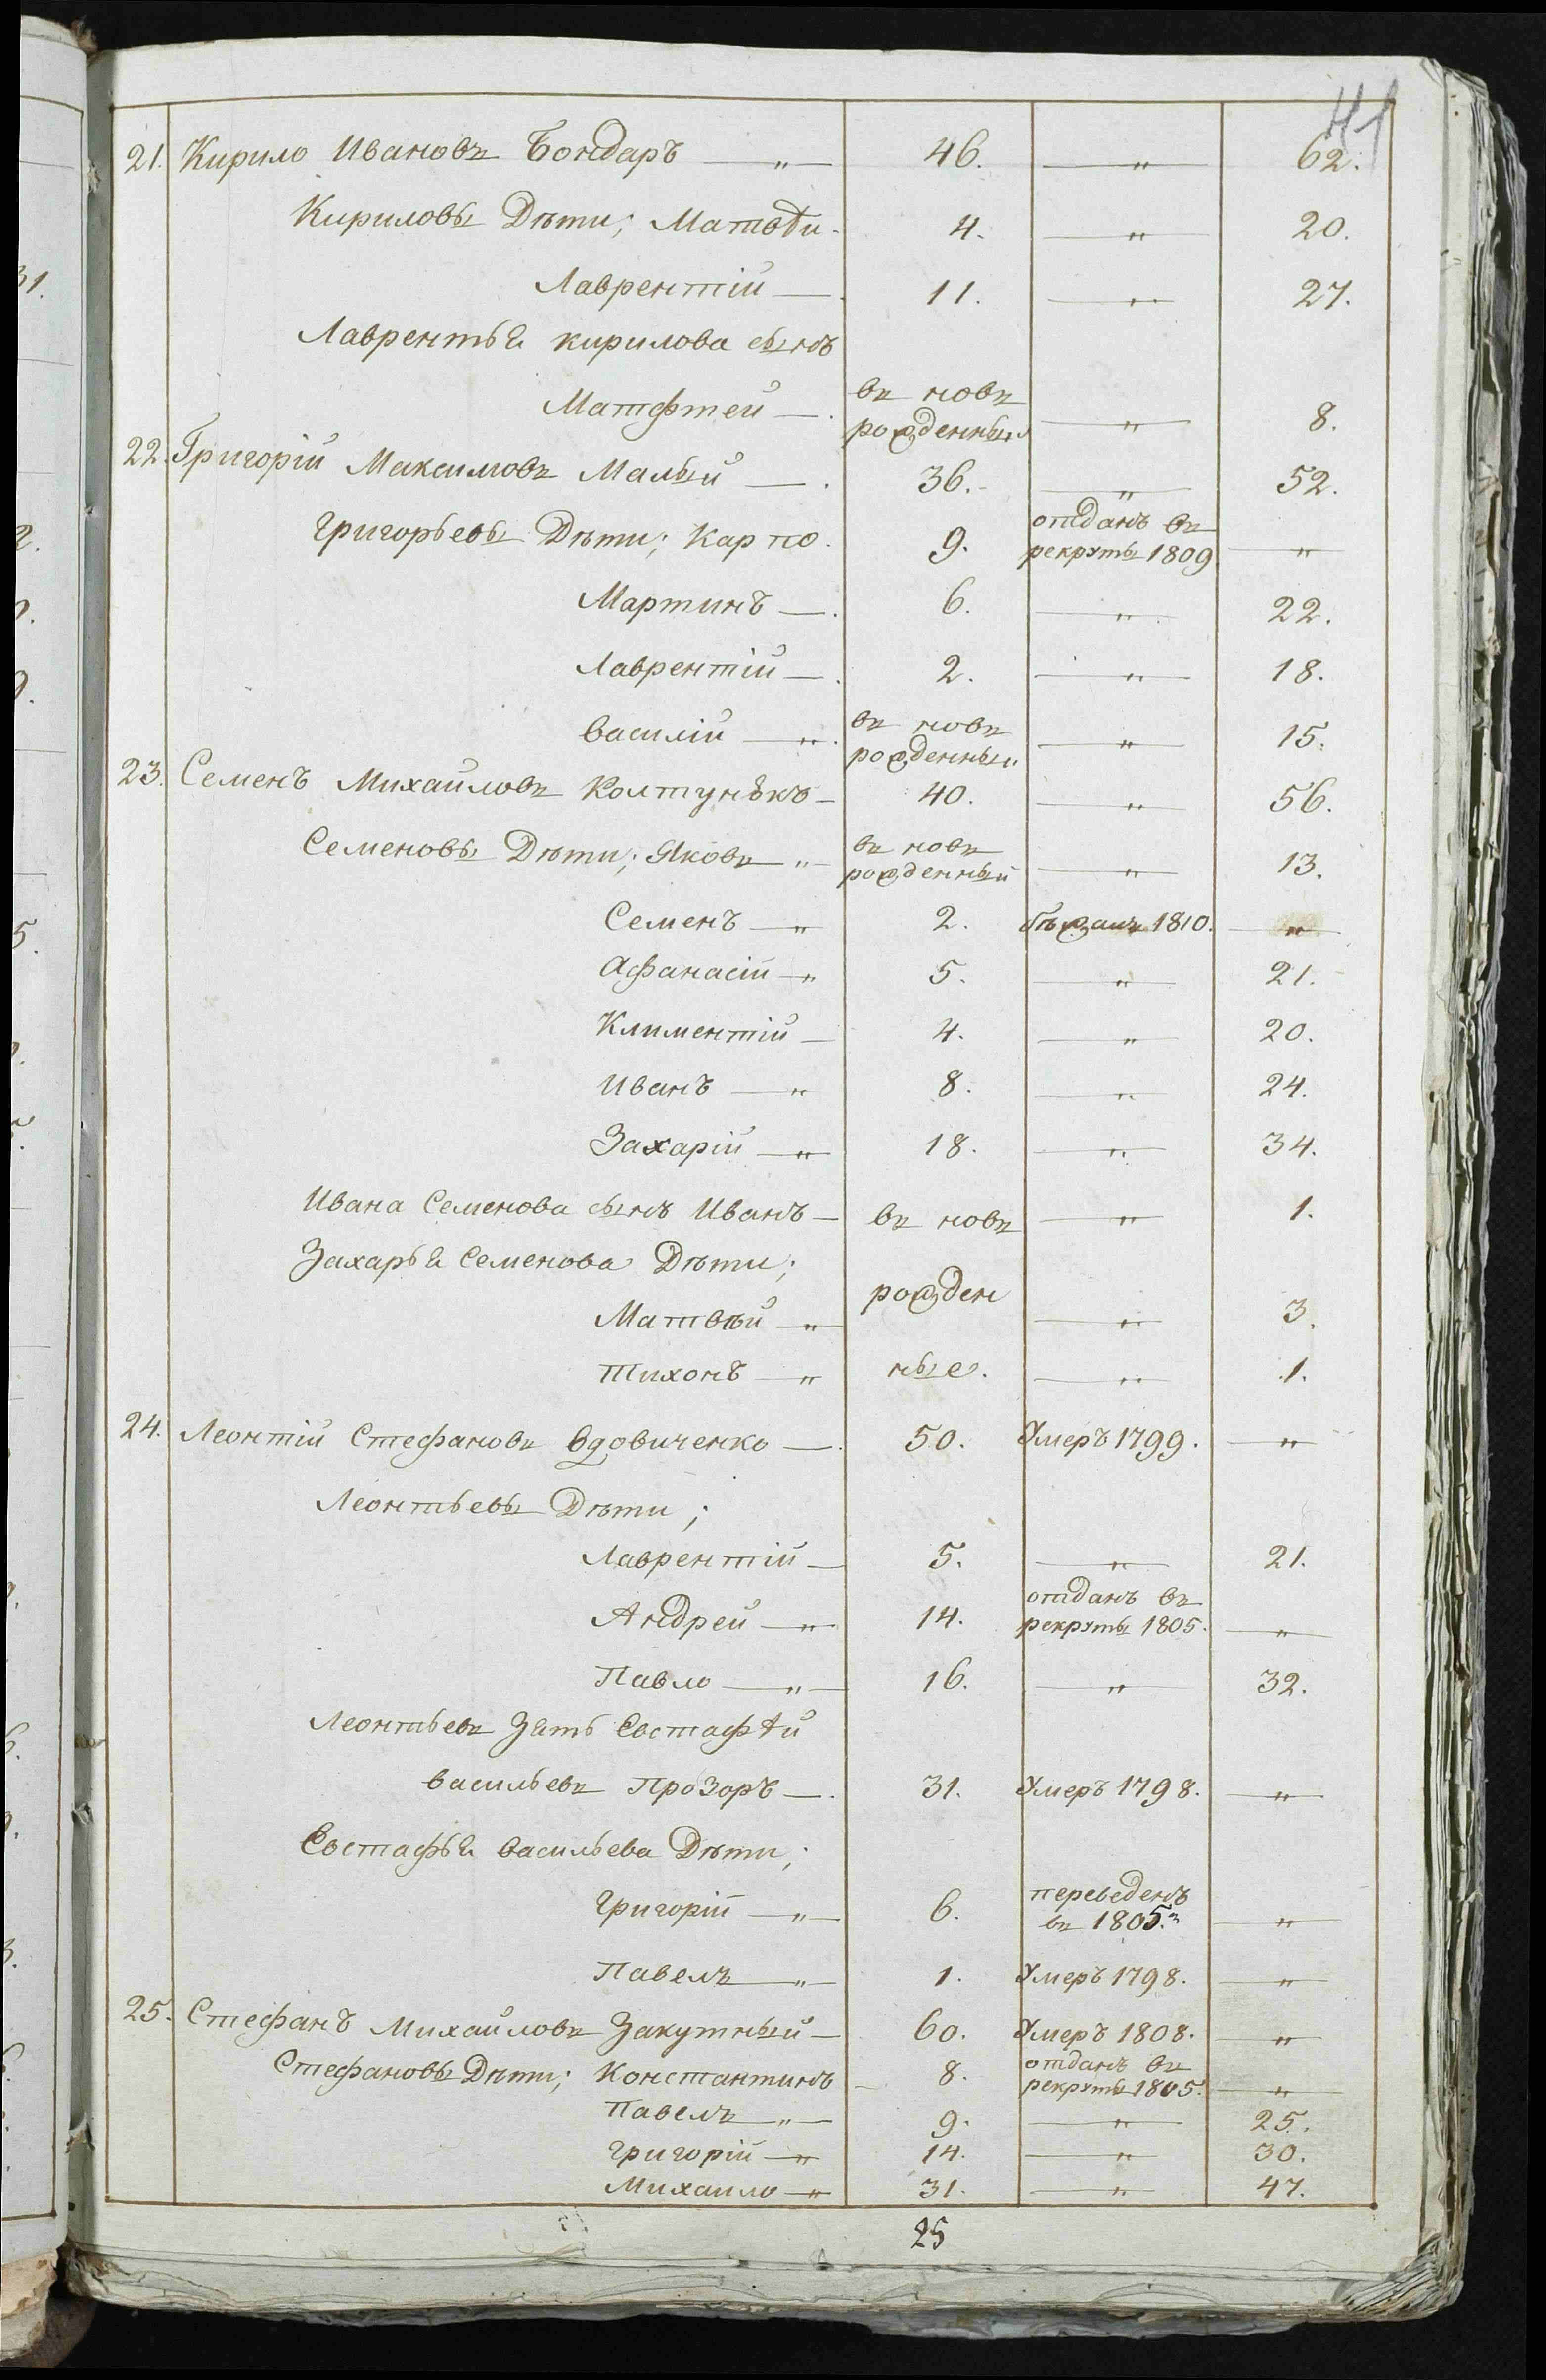 41
21. Кирило Ивановъ Бондаръ — „ — 46. — „ — 62.
Кириловы Дѣти; Матвѣи. 4. — „ — 20.
Лаврентій — . 11. — „ — 27.
Лаврентья кирилова сынъ
Матфтей — . въ новъ рожденный — „ — 8.
22. Григорій Максимовъ Малый — . 36. — „ — 52.
Григорьевы Дѣти; Карпо. 9. отданъ въ рекруты 1809 — „ —
Мартинъ — . 6. — „ — 22.
Лаврентій — . 2. — „ — 18.
василій — „ . въ новъ рожденный — „ — 15.
23. Семенъ Михайловъ Колтунѣкъ — 40. — „ — 56.
Семеновы Дѣти; Яковъ „ — въ новъ рожденный — „ — 13.
Семенъ — „ 2. бѣжалъ 1810. — „ —
Афанасій — „ 5. — „ — 21.
Климентій — 4. — „ — 20.
Иванъ — „ 8. — „ — 24.
Захарій — „ — 18. — „ — 34.
Ивана Семенова сынъ Иванъ — въ новъ — „ — 1.
Захарья Семенова Дѣти;
рожден
Матвѣй — „ — „ — 3.
Тихонъ — „ ные. — „ — 1.
24. Леонтій Стефановъ вдовиченко — . 50. Умеръ 1799. — „ —
Леонтьевы Дѣти;
Лаврентій — 5. — „ — 21.
Андрей — „ — 14. отданъ въ рекруты 1805. — „ —
Павло — „ — 16. — „ — 32.
Леонтьевъ Зять Евстафѣй
васильевъ Прозоръ — . 31. Умеръ 1798. — „ —
Евстафья васильева Дѣти;
Григорій — „ — 6. переведенъ въ 1805. — „ —
Павелъ — „ — 1. Умеръ 1798. — „ —
25. Стефанъ Михайловъ Закутный — 60. Умеръ 1808. — „ —
Стефановы Дѣти; Константинъ — 8. отданъ въ рекруты 1805. — „ —
Павелъ „ — 9. — „ — 25.
Григорій — „ 14. — „ — 30.
Михаило — „ 31. — „ — 47.
25